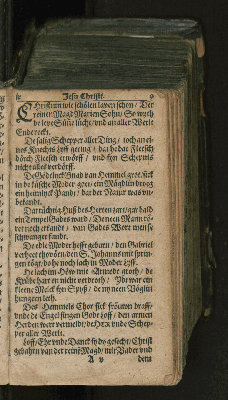 Jesu Christi. 9
CHristum wy schölen laven schon / Der
reinen Magd Marien Sohn / So wyth
de leve Sünn lücht / und an aller Werlt
Ende reckt.
De salig Schepper aller Ding / toch an ei-
nes Knechts lyff gering / dat he dat Fleesch
dörch Fleesch erwörff / und syn Schepnis
nicht alles vordörff.
De Gödtlick Gnad van Hemmel grot / sick
in de küsche Moder goet / ein Mägdlin droog
ein heimlyck Pandt / dat der Natur was un-
bekandt.
Dat tüchtig Huß des Herten zart / gar bald
ein Tempel Gades ward / De neen Mann rö-
ret noch erkandt / van Gades Wort men se
schwanger fandt.
De edle Moder hefft gebarn / den Gabriel
vorheet thovörn / den S. Johanns mit sprin-
gen tögt / do he noch lach in Moder Lyff.
He lach im Höw mit Armode groth / de
Krübbe hart en nicht vordroth / Idt war ein
kleene Melck syn Spyß / de ny neen Vöglin
hungeren leth.
Des Hemmels Chor sick fröuwen draff /
unde de Engel singen Gode Loff / den armen
Herden wert vermeldt / de HErr unde Schep-
per aller Werlt.
Loff / Ehr unde Danck sy dy gesecht / Christ
gebahrn van der reine Magd / mit Vader und
A v dem